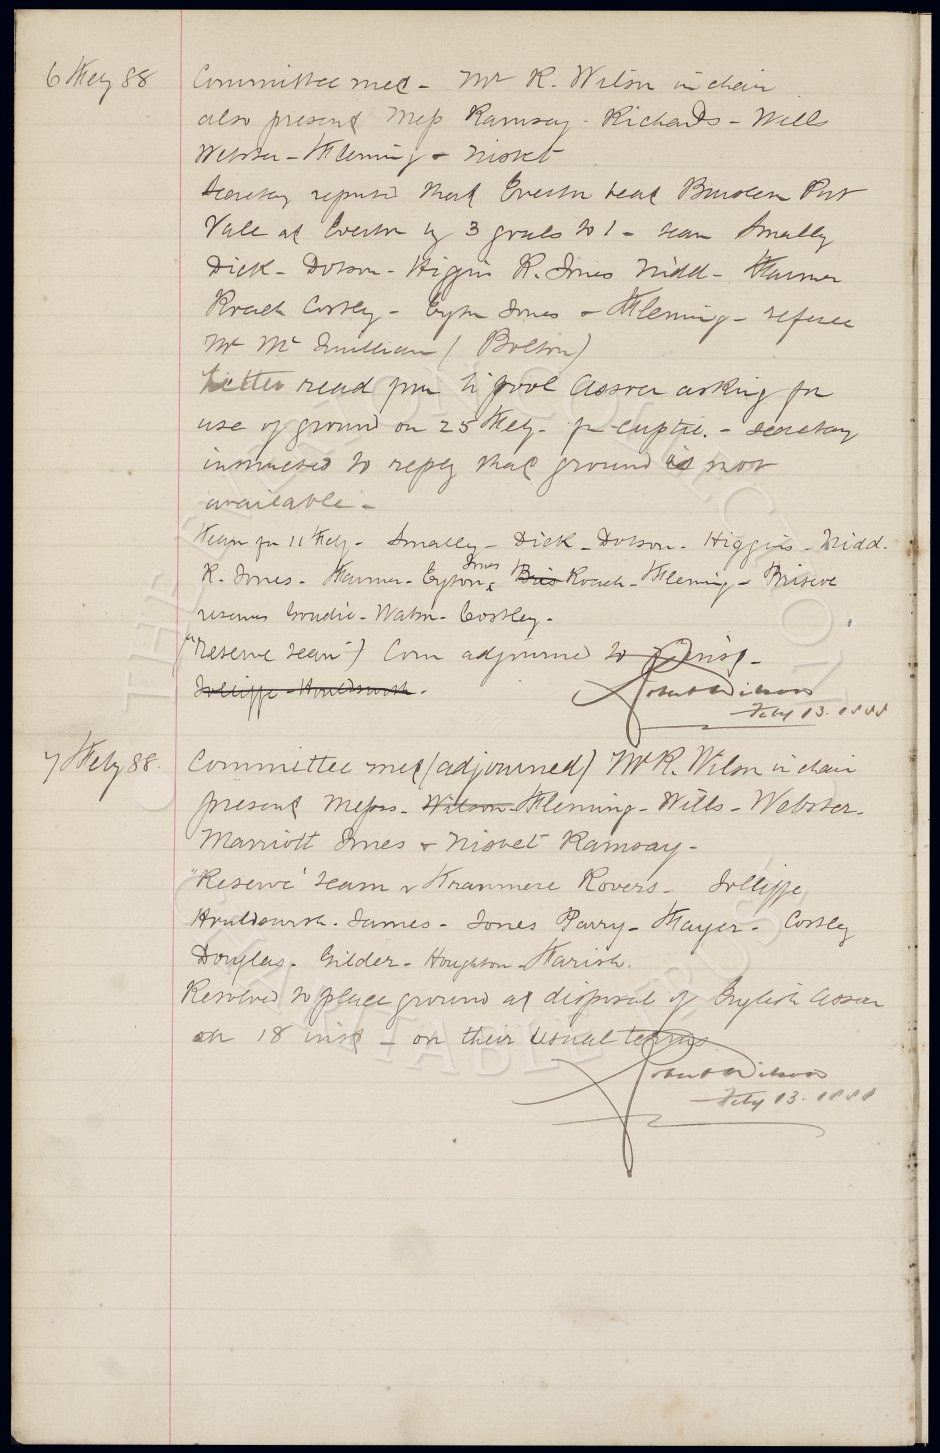 6 Feby 88 Committee met - Mr R. Wilson in chair
also present Mess Ramsay - Richards - Wills
Webster - Fleming & Nisbet
Secretary reported that Everton beat Burslem Port
Vale at Everton by 3 goals to 1 - team Smalley
Dick - Dobson - Higgins R. Jones Nidd - Farmer
Roach Costley - Eyton Jones & Fleming - referee
Mr Mc (Bolton)
Letter read from L'pool Assocn asking for
use of ground on 25 Feby - for cuptie. - Secretary
instructed to reply that ground is not
available -
Team for 11 Feby - Smalley - Dick - Dobson - Higgins - Nidd.
R. Jones - Farmer - Eyton Jones Bris Roach - Fleming - Briscoe
reserves Goudie - Watson - Costley -
("Reserve team") Com adjourned to 7 inst -
Jolliffe - Houldsworth.
Robert Wilson
Feby 13. 1888
7 Feby 88. Committee met (adjourned) Mr R. Wilson in chair
present Messrs - Watson - Fleming - Wills - Webster -
Marriott Jones & Nisbet Ramsay -
"Reserve" team v Tranmere Rovers - Jolliffe
Houldsworth - James - Jones Parry - Mayer - Costley
Douglas - Gilder - Houghton - Harish.
Resolved to place ground at disposal of English Assocn
on 18 inst - on their usual terms
Robert Wilson
Feby 13. 1888
THE EVERTON COLLECTION
CHARITABLE TRUST